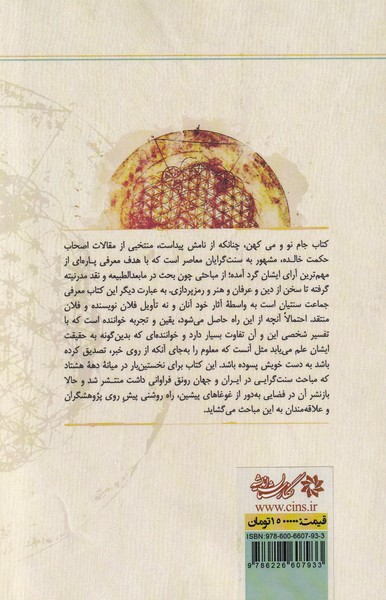 کتاب جام نو و می کهن، چنانکه از نامش پیداست، منتخبی از مقالات اصحاب
حکمت خالده، مشهور به سنت‌گرایان معاصر است که با هدف معرفی پاره‌ای از
مهم‌ترین آرای ایشان گرد آمده؛ از مباحثی چون بحث در مابعدالطبیعه و نقد مدرنیته
گرفته تا سخن از دین و عرفان و هنر و رمزپردازی. به عبارت دیگر این کتاب معرفی
جماعت سنتیان است به واسطهٔ آثار خود آنان و نه تأویل فلان نویسنده و فلان
منتقد. احتمالاً آنچه از این راه حاصل می‌شود، یقین و تجربه خواننده است که با
تفسیر شخصی این و آن تفاوت بسیار دارد و خواننده‌ای که بدین‌گونه به حقیقت
ایشان علم می‌یابد مثل آنست که معلوم را به‌جای آنکه از روی خبر، تصدیق کرده
باشد به دست خویش پسوده باشد. این کتاب برای نخستین‌بار در میانهٔ دههٔ هشتاد
که مباحث سنت‌گرایی در ایران و جهان رونق فراوانی داشت منتشر شد و حالا
بازنشر آن در فضایی به‌دور از غوغاهای پیشین، راه روشنی پیش روی پژوهشگران
و علاقه‌مندان به این مباحث می‌گشاید.
نگارستان اندیشه
www.cins.ir
قیمت: ۱۵۰۰۰۰۰ تومان
ISBN: 978-600-6607-93-3
9 786226 607933